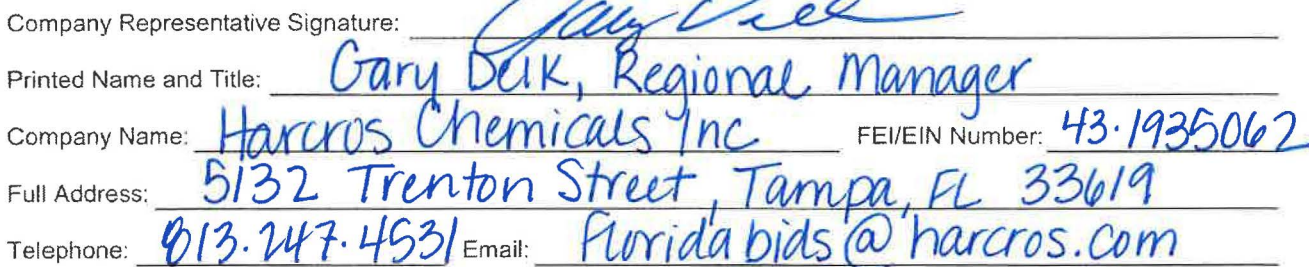 Company Representative Signature:
Printed Name and Title: Gary Delk, Regional Manager
Company Name: Harcros Chemicals Inc FEI/EIN Number: 43.1935062
Full Address: 5132 Trenton Street, Tampa, FL 33619
Telephone: 813.247.4531 Email: Floridabids@harcros.com